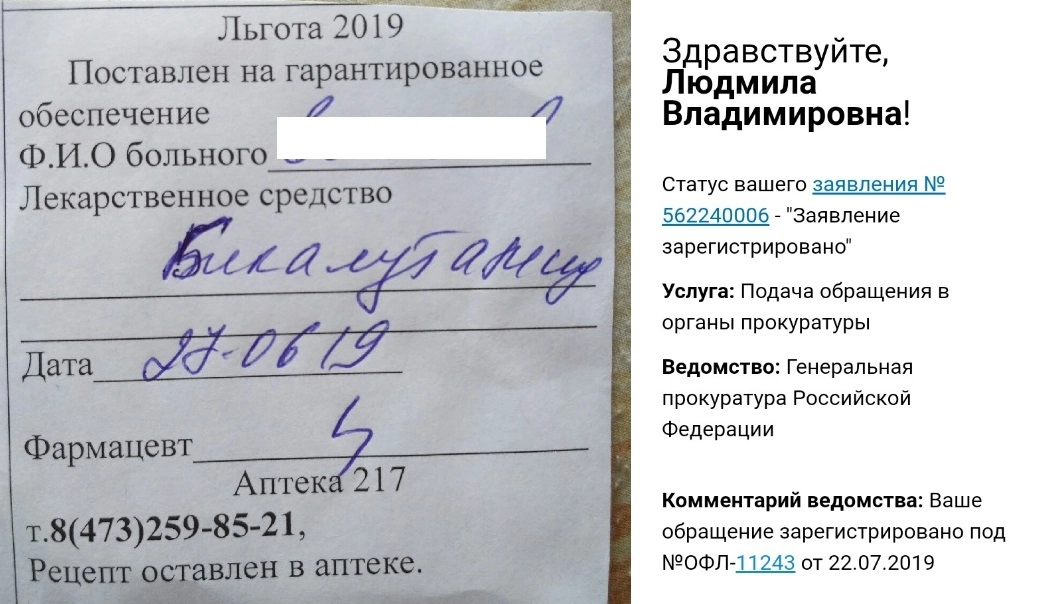 Льгота 2019
Поставлен на гарантированное
обеспечение
Ф.И.О больного
Лекарственное средство
Бикалутамид
Дата 27.06 19
Фармацевт
Аптека 217
т.8(473)259-85-21,
Рецепт оставлен в аптеке.
Здравствуйте,
Людмила
Владимировна!
Статус вашего заявления №
562240006 - "Заявление
зарегистрировано"
Услуга: Подача обращения в
органы прокуратуры
Ведомство: Генеральная
прокуратура Российской
Федерации
Комментарий ведомства: Ваше
обращение зарегистрировано под
№ОФЛ-11243 от 22.07.2019